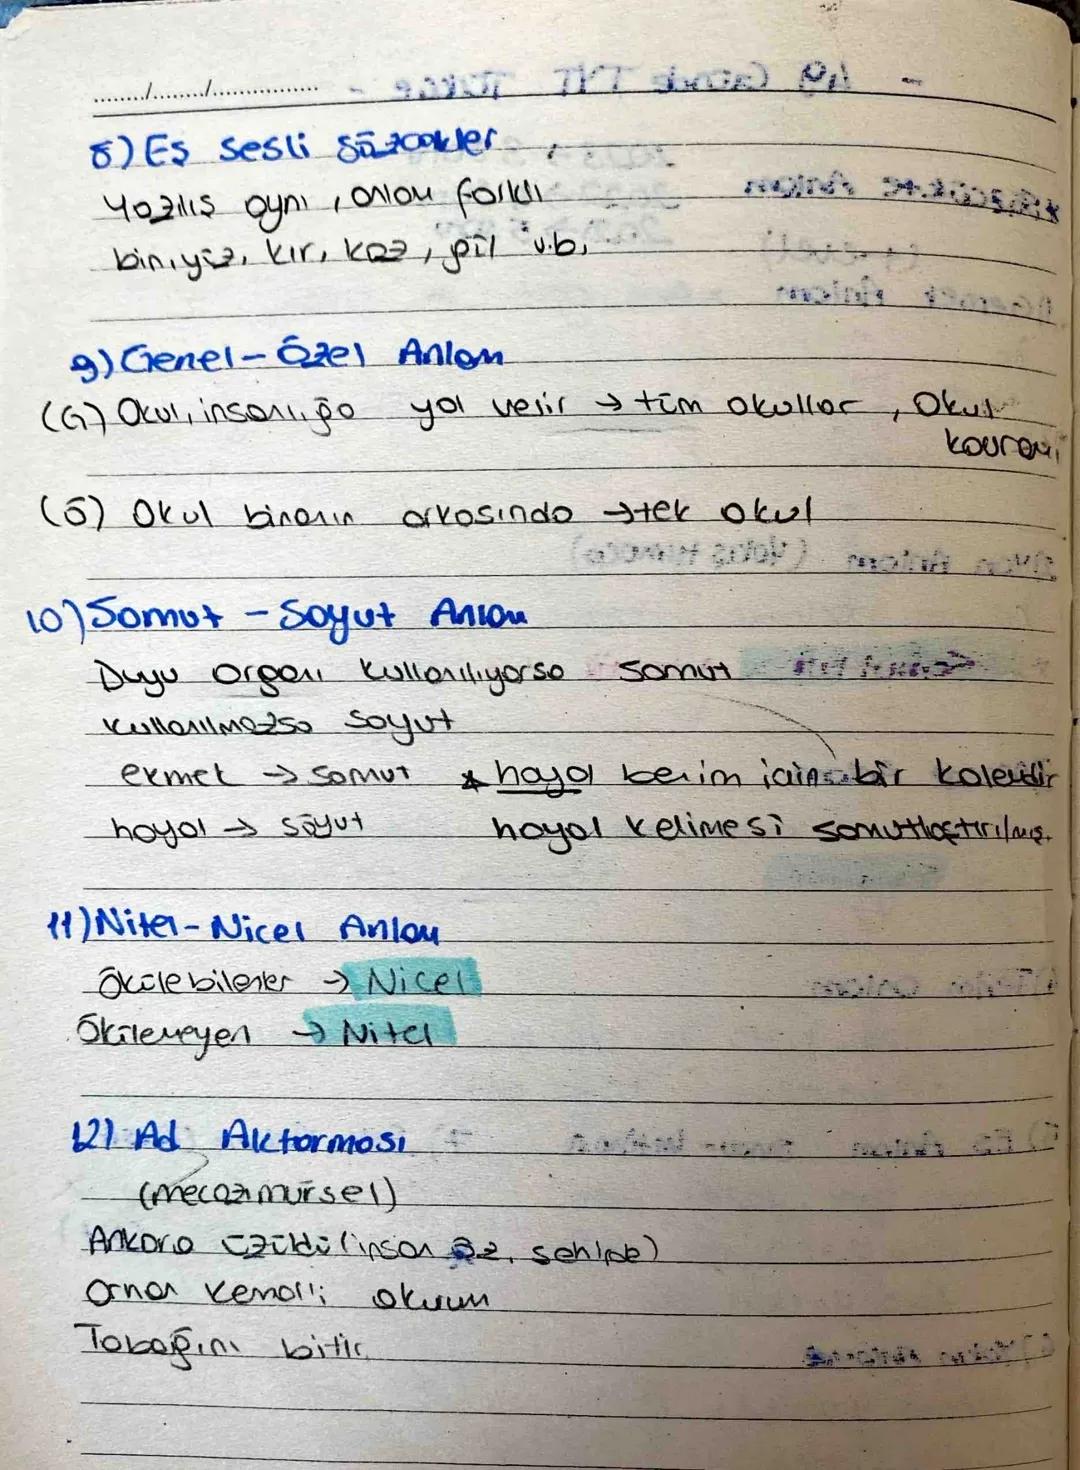 ......../......../................
8) Eş sesli Sözcükler
Yazılış aynı, anlam farklı
bin, yüz, kır, kaz, pil v.b.
9) Genel-Özel Anlam
(G) Okul, insanlığa yol verir → tüm okullar, Okul
kavramı
(Ö) Okul binanın arkasında → tek okul
10) Somut - Soyut Anlam
Duyu organı kullanılıyorsa somut
kullanılmazsa soyut
ekmek → somut * hayal benim için bir kalendir
hayal → soyut hayal kelimesi somutlaştırılmış.
11) Nitel-Nicel Anlam
Ölçülebilenler → Nicel
Ölçülemeyen → Nitel
12) Ad Aktarması
(mecazımürsel)
Ankara üzüldü (insan
Orhan Kemal'i okurum
Tabağını bitir